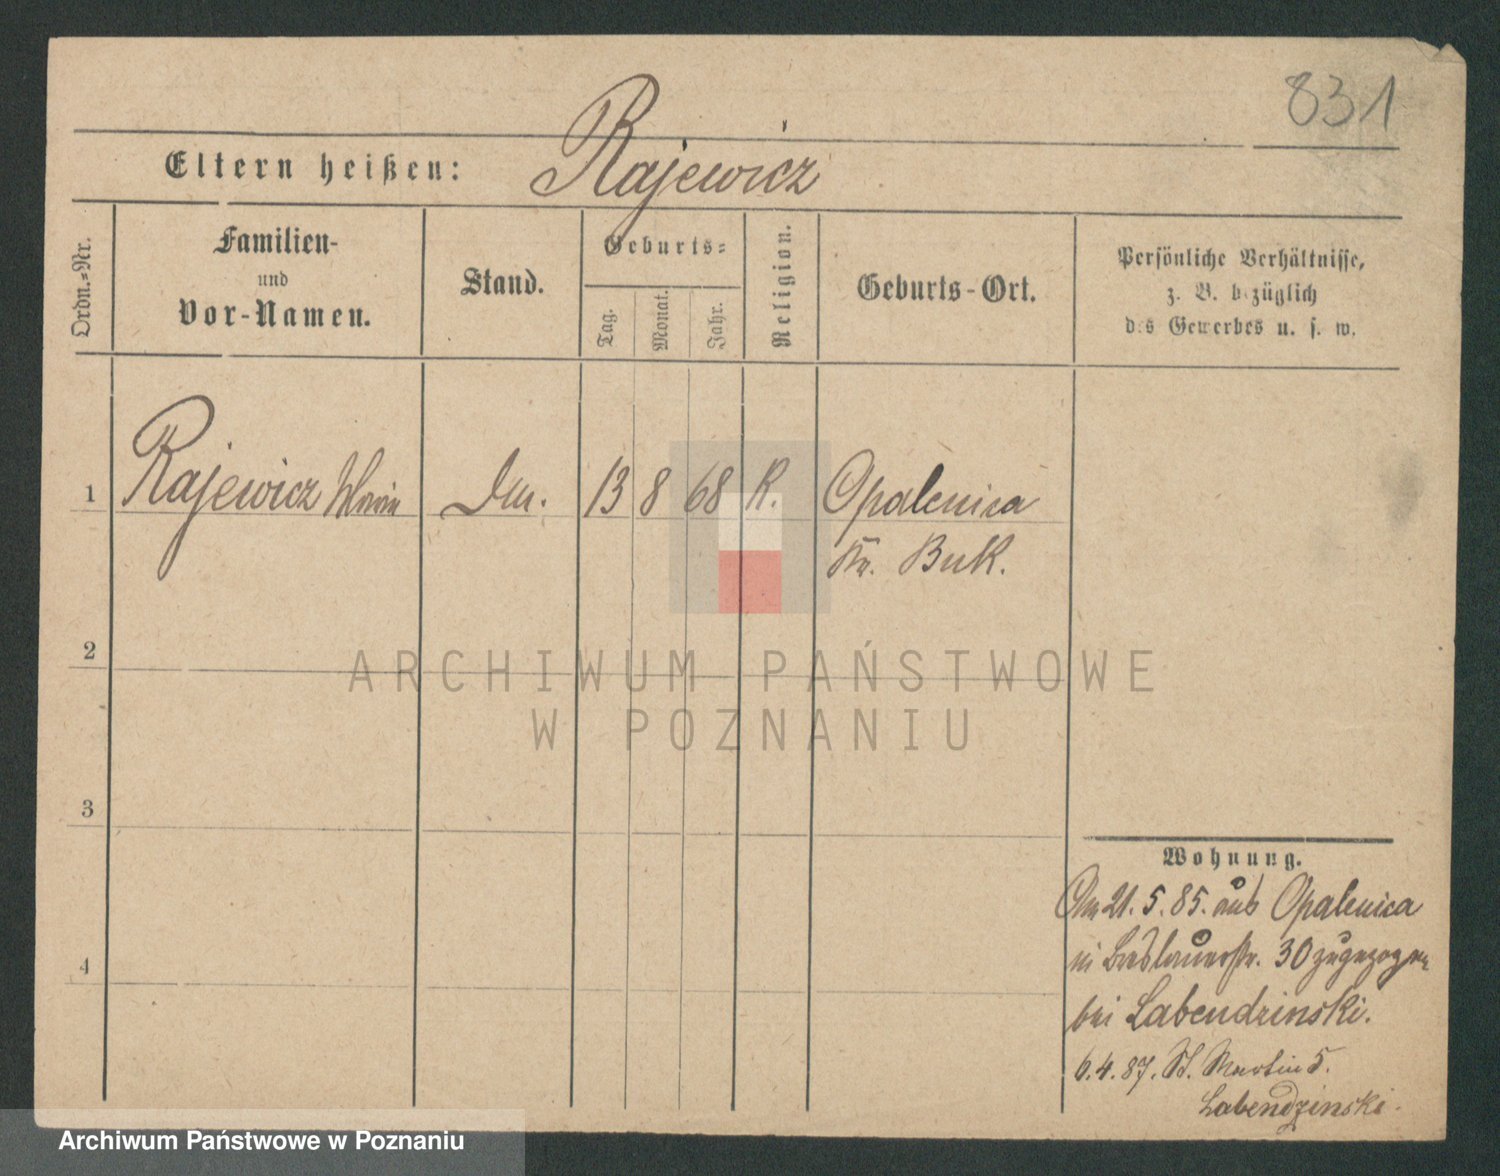 831
Eltern heißen: Rajewicz
Ordn.-Nr.
Familien-
und
Vor-Namen.
Stand.
Geburts-
Tag.
Monat.
Jahr.
Religion.
Geburts-Ort.
Persönliche Verhältnisse,
z. B. bezüglich
des Gewerbes u. s. w.
1 Rajewicz 13 8 68 K. Opalenica
Kr. Buk.
2
3
4
ARCHIWUM PAŃSTWOWE
W POZNANIU
Wohnung.
Am 21.5.85. aus Opalenica
in Breslauerstr. 30 zugezogen
bei Labendzinski.
6.4.87. St. Martin 5.
Labendzinski.
Archiwum Państwowe w Poznaniu